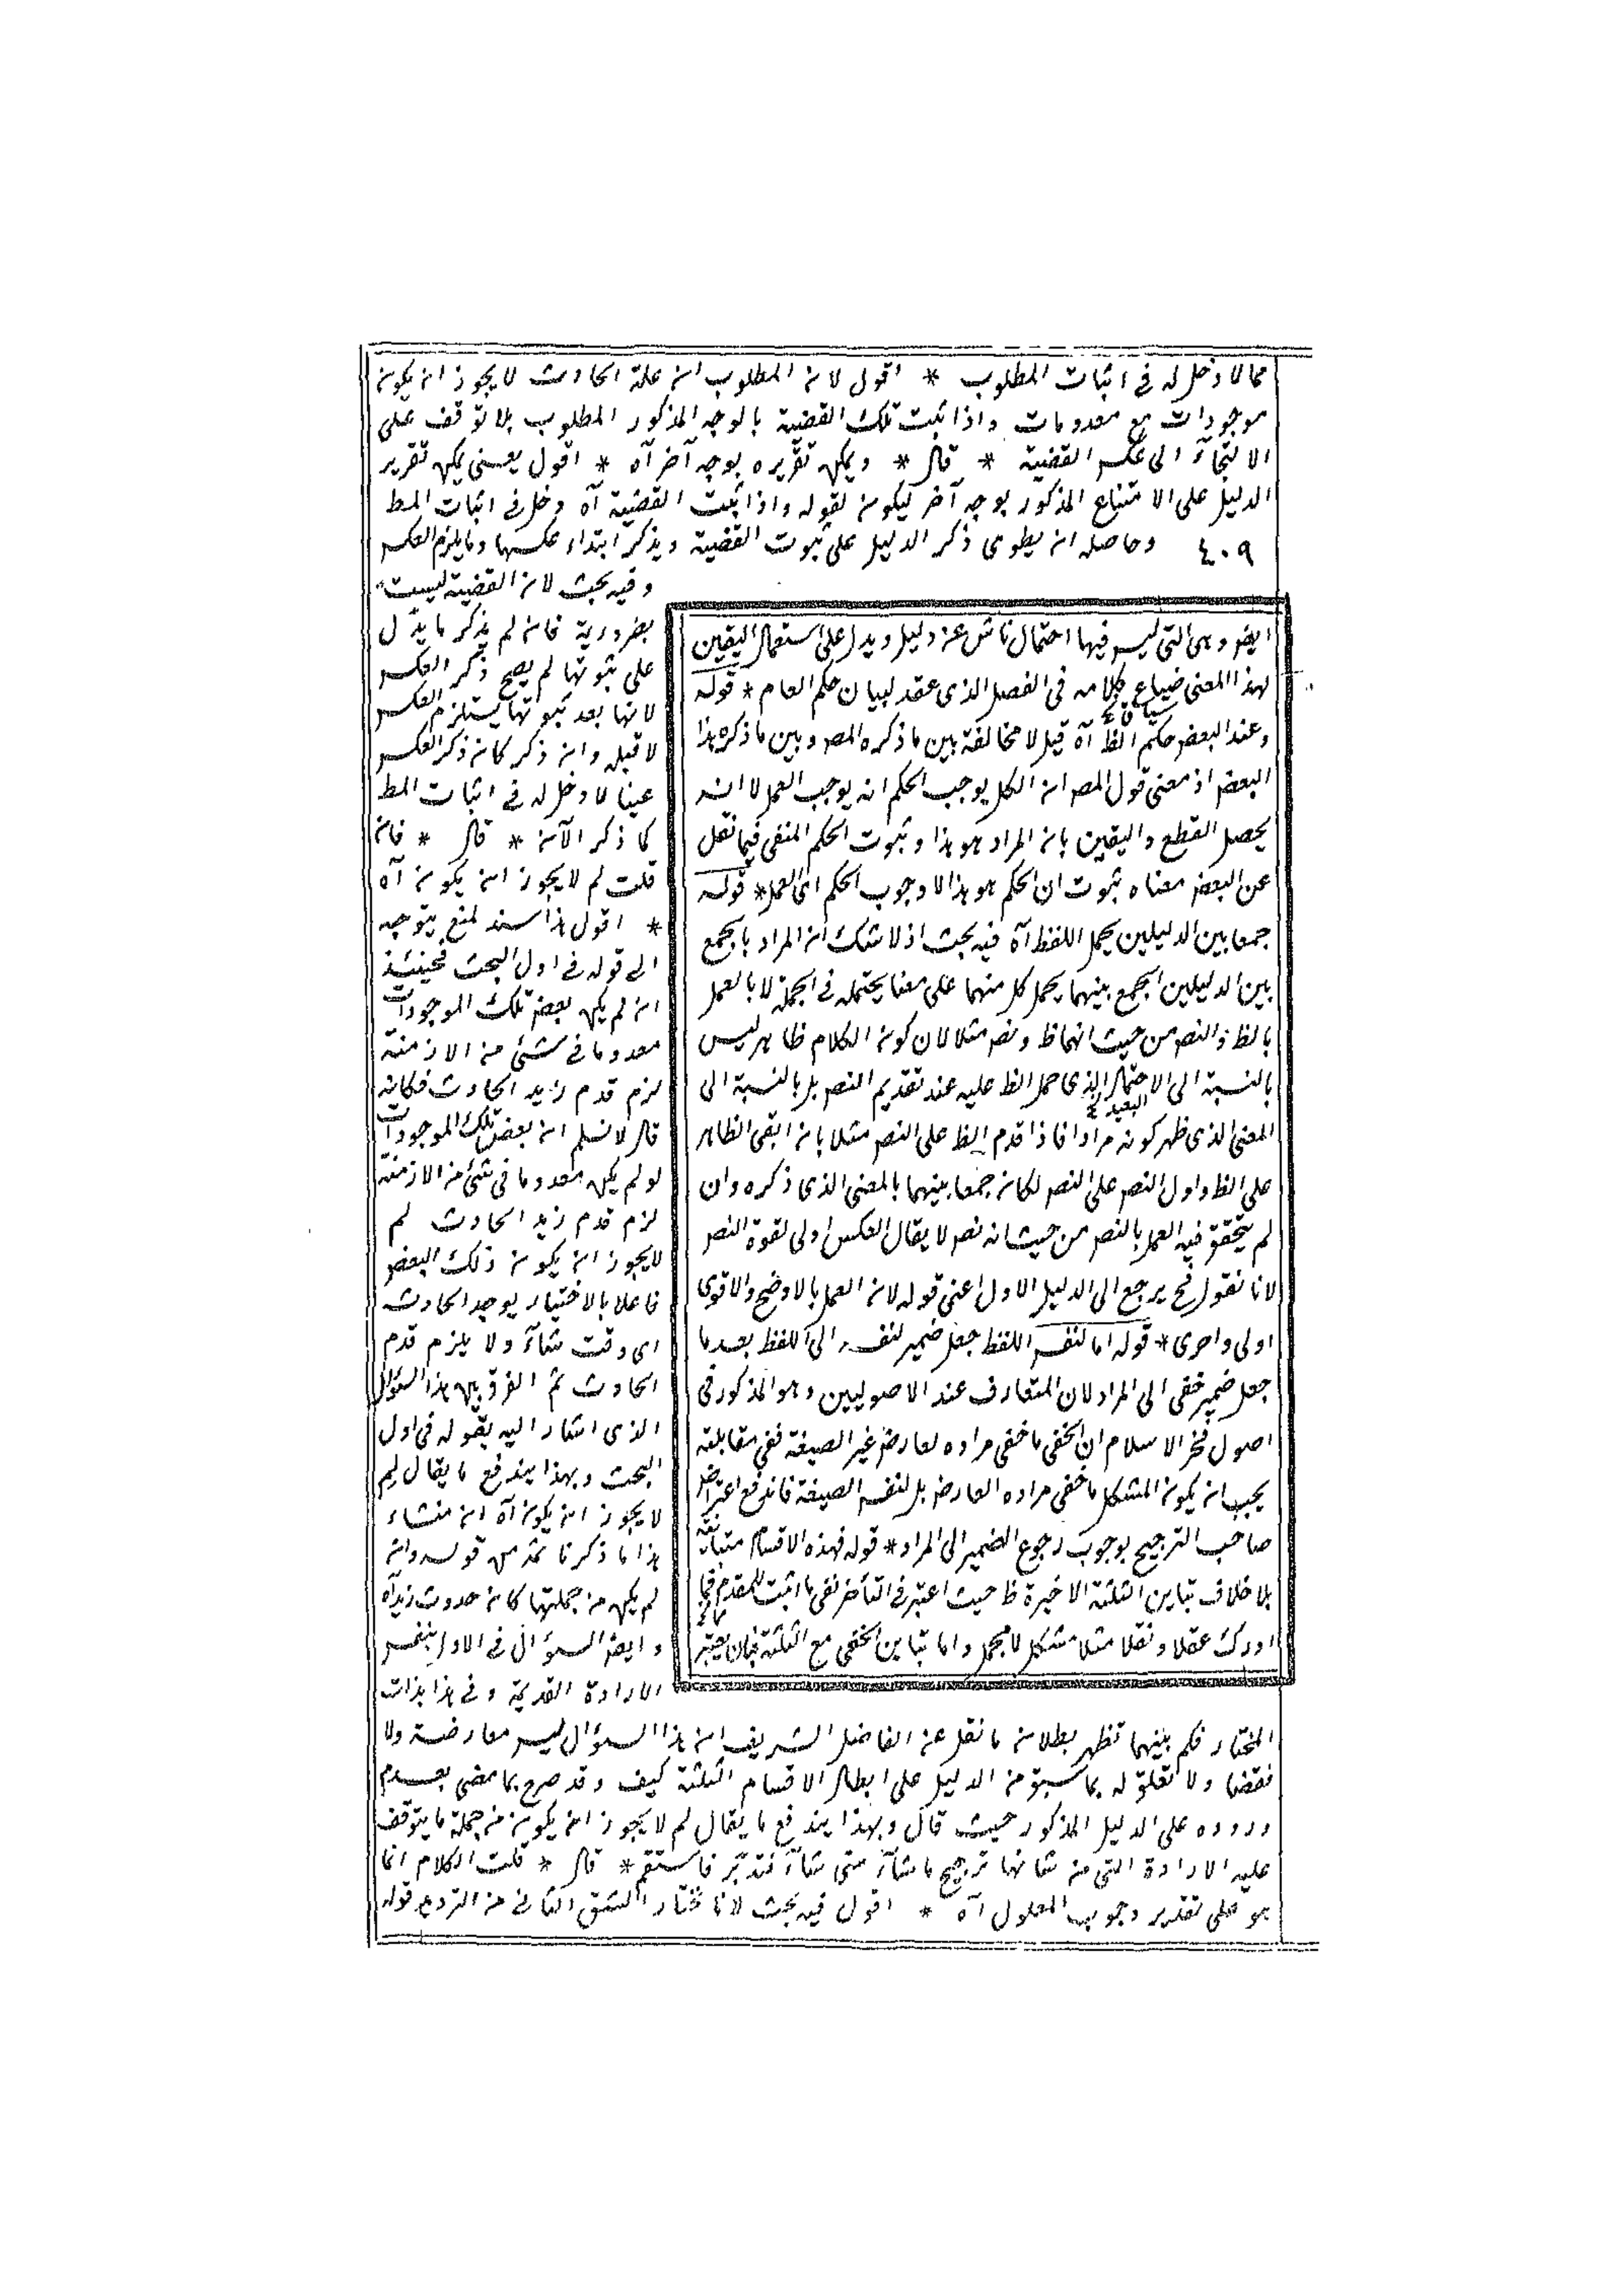 مما لا دخل له فى اثبات المطلوب * اقول لان المطلوب ان علة الحادث لا يجوز ان يكون
موجودات مع معدومات واذا ثبت تلك القضية بالوجه المذكور المطلوب بلا توقف على
الالتجآء الى عكس القضية * قال * ويمكن تقريره بوجه آخر آه * اقول يعنى يمكن تقرير
الدليل على الامتناع المذكور بوجه آخر ليكون لقوله واذا ثبت القضية آه دخل فى اثبات المط
٤٠٩ وحاصله ان يطوى ذكر الدليل على ثبوت القضية ويذكر ابتداء عكسها وما يلزم العكس
وفيه بحث لان القضية ليست
بضرورية فان لم يذكر ما يدل
على ثبوتها لم يصح ذكر العكس
لانها بعد ثبوتها يستلزم العكس
لا قبله وان ذكر كان ذكر العكس
عبثا لا دخل له فى اثبات المط
كما ذكر الآن * قال * فان
قلت لم لا يجوز ان يكون آه
* اقول هذا سند لمنع يتوجه
الى قوله فى اول البحث فحينئذ
ان لم يكن بعض تلك الموجودات
معدوما فى شئ من الازمنة
لزم قدم زيد الحادث فكانه
قال لا نسلم ان بعض تلك الموجودات
لو لم يكن معدوما فى شئ من الازمنة
لزم قدم زيد الحادث لم
لا يجوز ان يكون ذلك البعض
فاعلا بالاختيار يوجد الحادث
اى وقت شآء ولا يلزم قدم
الحادث ثم الفرق بين هذا السؤال
الذى اشار اليه بقوله فى اول
البحث وبهذا يندفع ما يقال لم
لا يجوز ان يكون آه ان منشاء
هذا ما ذكرنا ثمه من قوله وان
لم يكن من جملتها كان حدوث زيد آه
وايضا السؤال فى الاول بنفس
الارادة القديمة وفى هذا بذات
المختار فكم بينهما تظهر بطلان ما نقل عن الفاضل الشريف ان هذا السؤال ليس معارضة ولا
نقضا ولا تعلق له بما سبق من الدليل على ابطال الاقسام الثلثة كيف وقد صرح بما مضى بعدم
وروده على الدليل المذكور حيث قال وبهذا يندفع ما يقال لم لا يجوز ان يكون من جملة ما يتوقف
عليه الارادة التى من شانها ترجيح ما شآء متى شآء فتدبر فاستقم * قال * قلت الكلام انما
هو على تقدير وجوب المعلول آه * اقول فيه بحث لانا نختار الشق الثانى من الترديد قوله
ايض وهى التى ليس فيها احتمال ناش عن دليل ويدل على استعمال اليقين
لهذا المعنى سياق كلامه فى الفصل الذى عقد لبيان حكم العام * قوله
وعند البعض حكم الظ آه قيل لا مخالفة بين ما ذكره المص وبين ما ذكره هذا
البعض اذ معنى قول المص ان الكل يوجب الحكم انه يوجب العمل لا ان
يحصل القطع واليقين بان المراد هو هذا وثبوت الحكم المنفى فيما نقل
عن البعض معناه ثبوت ان الحكم هو هذا لا وجوب الحكم اى العمل * قوله
جمعا بين الدليلين يحمل اللفظ آه فيه بحث اذ لا شك ان المراد بالجمع
بين الدليلين الجمع بينهما بحمل كل منهما على معنا يحتمله فى الجملة لا بالعمل
بالظ والنص من حيث انهما ظ ونص مثلا لان كون الكلام ظاهر ليس
بالنسبة الى الاحتمال البعيد الذى حمل الظ عليه عند تقديم النص بل بالنسبة الى
المعنى الذى ظهر كونه مرادا فاذا قدم الظ على النص مثلا بان ابقى الظاهر
على الظ واول النص على النص لكان جمعا بينهما بالمعنى الذى ذكره وان
لم يتحقق فيه العمل بالنص من حيث انه نص لا يقال العكس اولى لقوة النص
لانا نقول فح يرجع الى الدليل الاول اعنى قوله لان العمل بالاوضح والاقوى
اولى واحرى * قوله اما لنفس اللفظ جعل ضمير لنفسه الى اللفظ بعد ما
جعل ضمير خفى الى المراد لان المتعارف عند الاصوليين وهو المذكور فى
اصول فخر الاسلام ان الخفى ما خفى مراده لعارض غير الصيغة ففى مقابلته
يجب ان يكون المشكل ما خفى مراده لا لعارض بل لنفس الصيغة فاندفع اعتراض
صاحب الترجيح بوجوب رجوع الضمير الى المراد * قوله فهذه الاقسام متباينة
بلا خلاف تباين الثلثة الاخيرة ظ حيث اعتبر فى المتأخر نفى ما اثبت للمقدم فما
ادرك عقلا ونقلا مثلا مشكل لا مجمل واما تباين الخفى مع الثلثة فبان يعتبر